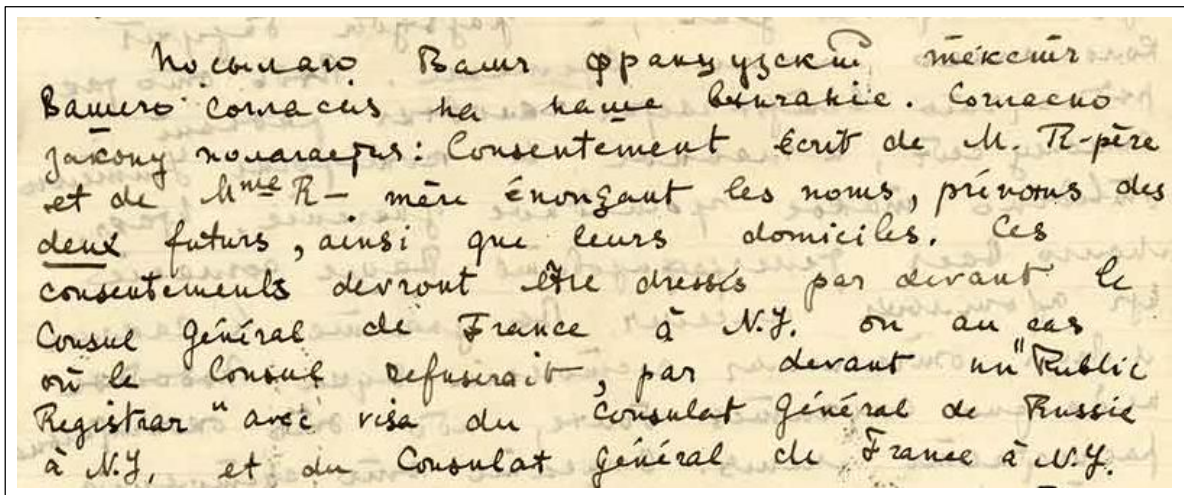 Посылаю Вамъ французскій текстъ
Вашего согласія на наше вѣнчаніе. Согласно
закону полагается: Consentement écrit de M. R-père
et de Mme R- mère énonçant les noms, prénoms des
deux futurs, ainsi que leurs domiciles. Ces
consentements devront être dressés par devant le
Consul Général de France à N.Y. ou au cas
où le Consul refuserait, par devant un "Public
Registrar" avec visa du Consulat Général de Russie
à N.Y, et du Consulat Général de France à N.Y.